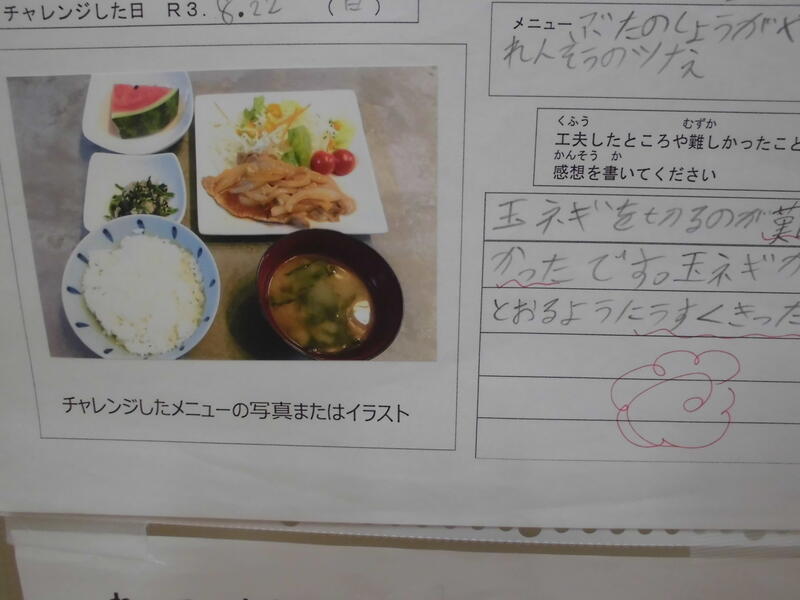 チャレンジした日 R3. 8.22 (日)
メニュー ぶたのしょうがや
れんそうのツナあえ
くふう むずか
工夫したところや難しかったこと
かんそう か
感想を書いてください
玉ネギを切るのが難し
かったです。玉ネギが
とおるようにうすくきった
チャレンジしたメニューの写真またはイラスト